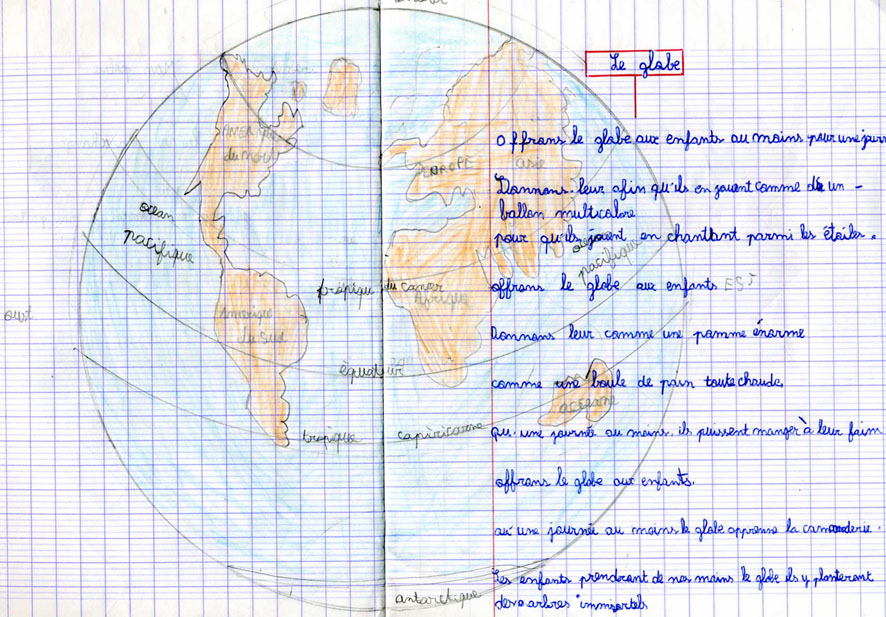 Le globe
offrons le globe aux enfants au moins pour une journ
Donnons-leur afin qu'ils en jouent comme de un -
ballon multicolore
pour qu'ils jouent en chantant parmi les étoiles.
offrons le globe aux enfants
Donnons leur comme une pomme énorme
comme une boule de pain toute chaude,
qu'une journée au moins, ils puissent manger à leur faim
offrons le globe aux enfants.
qu'une journée au moins le globe apprenne la camaraderie.
Les enfants prendront de nos mains le globe ils y planteront
des arbres immortels
AMÉRIQUE
du nord
EUROPE
asie
océan
pacifique
océan
pacifique
tropique du cancer
Afrique
EST
ouest
Amérique
du Sud
équateur
OCÉANIE
tropique capricorne
antarctique